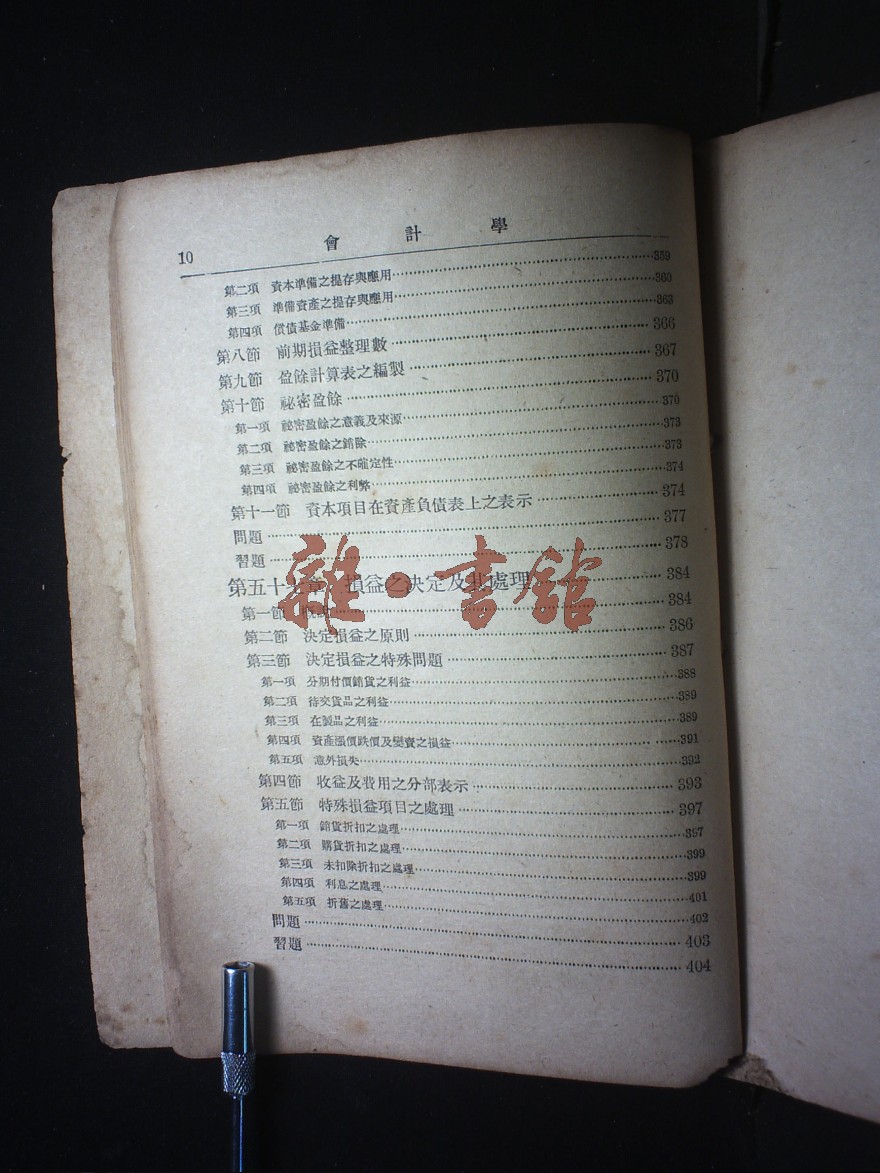 10 會計學
第二項 資本準備之提存與應用……359
第三項 準備資產之提存與應用……360
第四項 償債基金準備……363
第八節 前期損益整理數……366
第九節 盈餘計算表之編製……367
第十節 祕密盈餘……370
第一項 祕密盈餘之意義及來源……370
第二項 祕密盈餘之銷除……373
第三項 祕密盈餘之不確定性……373
第四項 祕密盈餘之利弊……374
第十一節 資本項目在資產負債表上之表示……374
問題……377
習題……378
第五十章 損益之決定及其處理……384
第一節 概說……384
第二節 決定損益之原則……386
第三節 決定損益之特殊問題……387
第一項 分期付價銷貨之利益……388
第二項 待交貨品之利益……389
第三項 在製品之利益……389
第四項 資產漲價跌價及變賣之損益……391
第五項 意外損失……392
第四節 收益及費用之分部表示……393
第五節 特殊損益項目之處理……397
第一項 銷貨折扣之處理……397
第二項 購貨折扣之處理……399
第三項 未扣除折扣之處理……399
第四項 利息之處理……401
第五項 折舊之處理……402
問題……403
習題……404
雜·書館